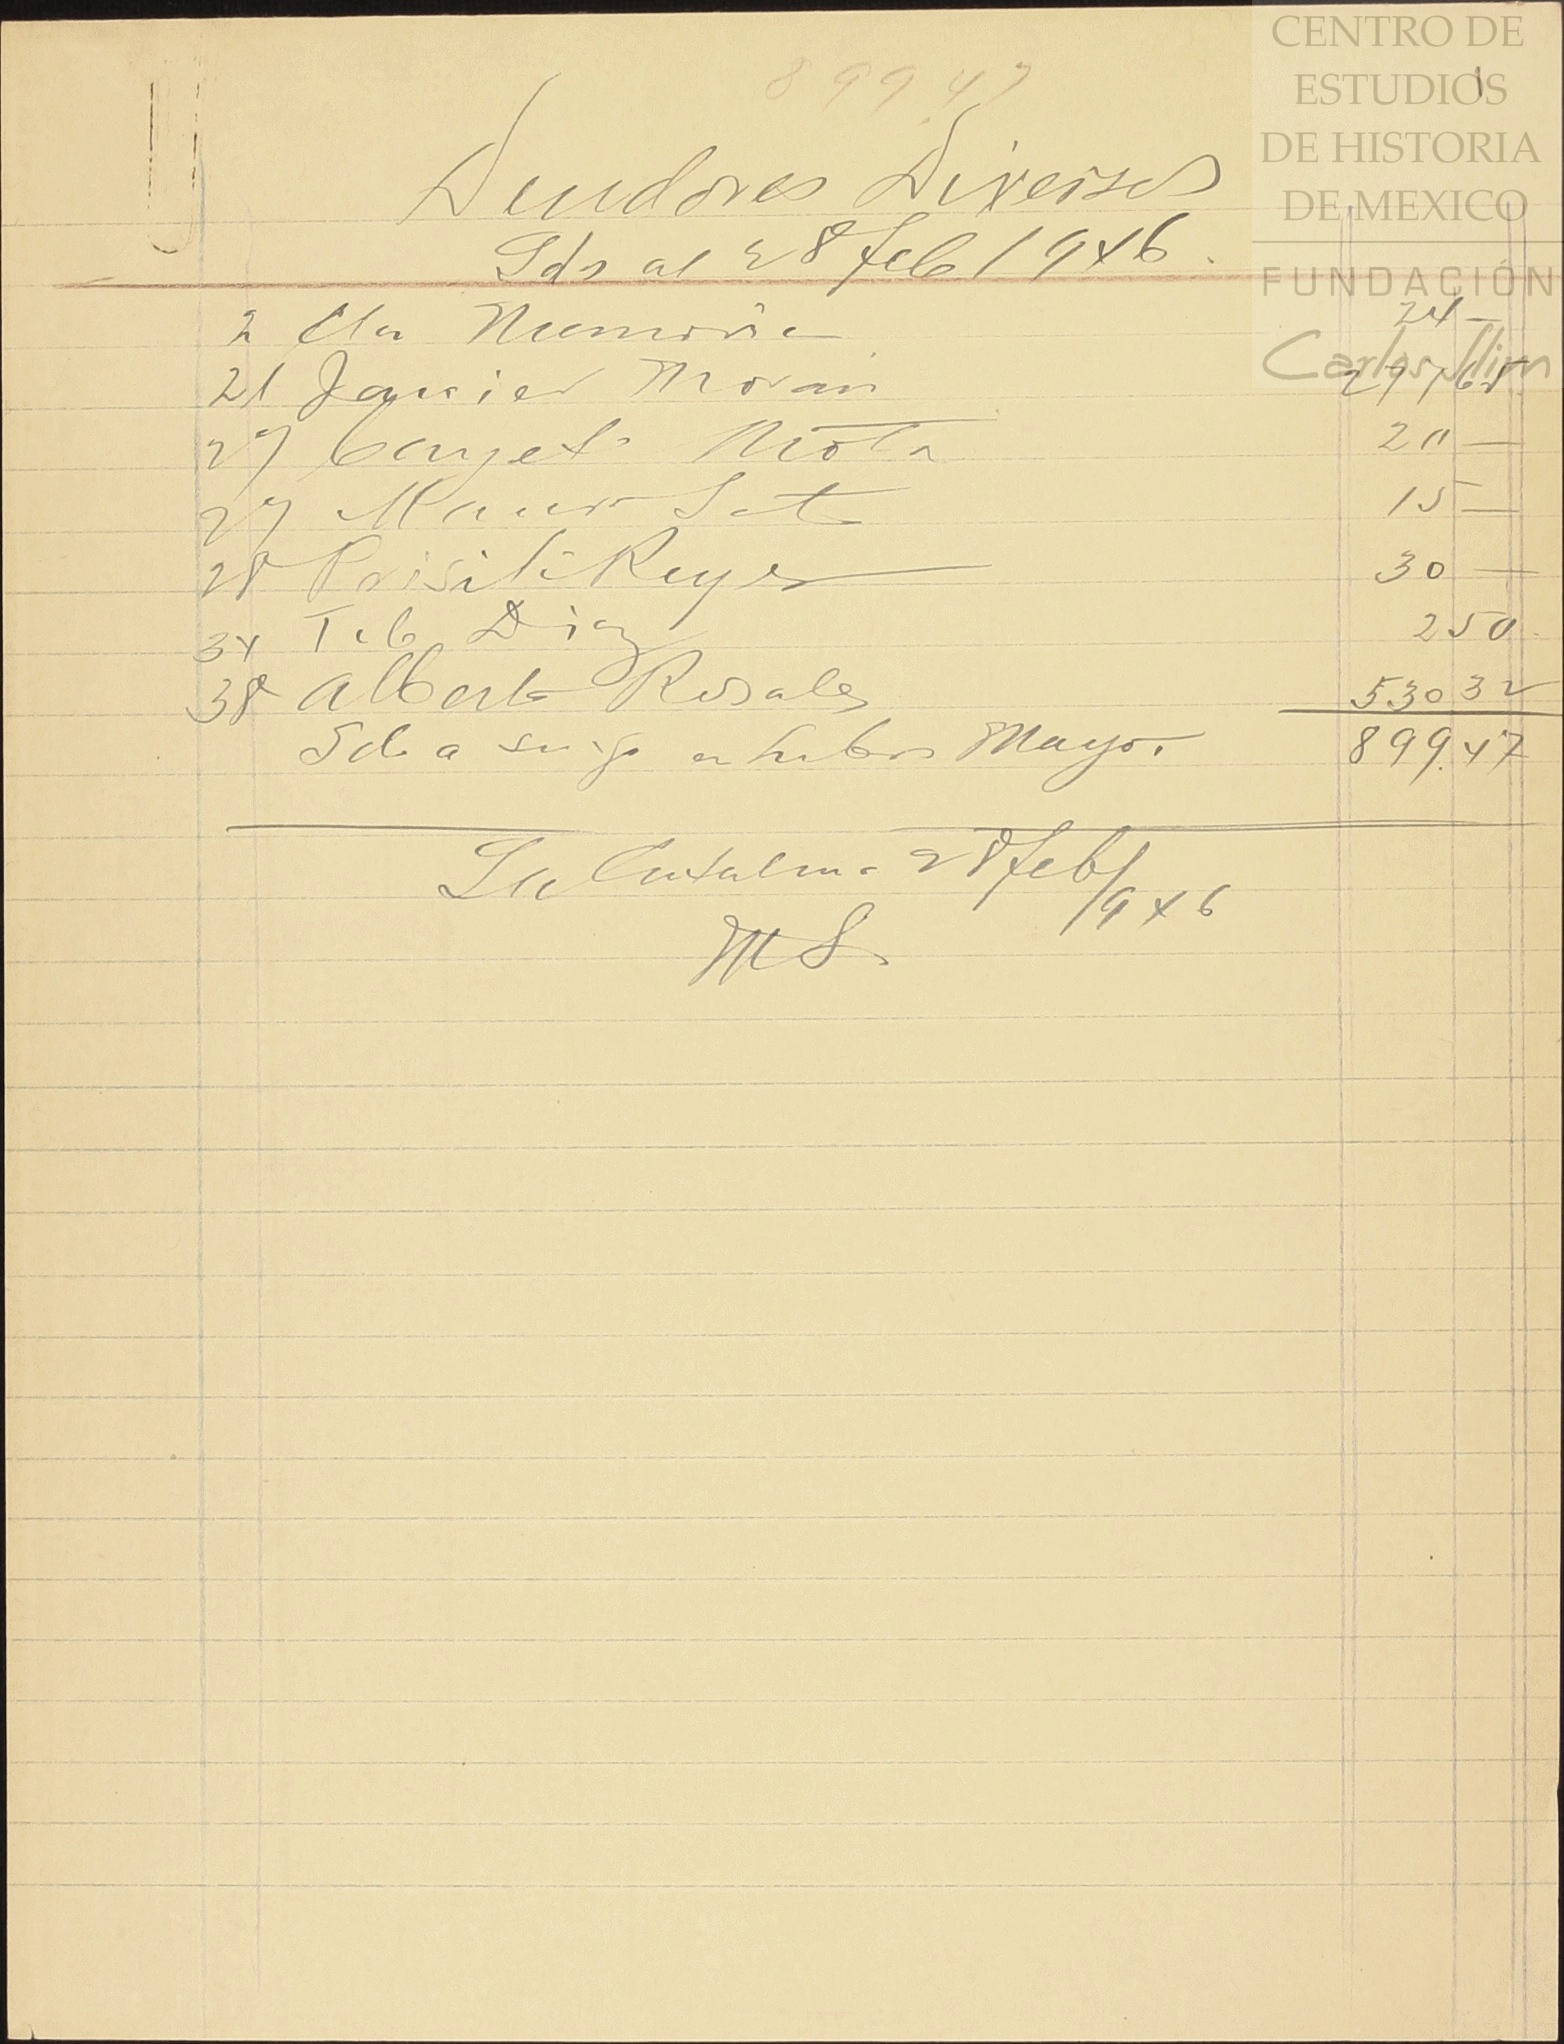 899.47
CENTRO DE
ESTUDIOS
DE HISTORIA
DE MEXICO
FUNDACIÓN
Carlos Slim
1
Deudores Diversos
Sds al 28 feb 1946.
2 Cta 24 —
21 Javier Moran 277 65
27 Cayet° Mota 20 —
27 Mauro Soto 15 —
28 Reyes 30 —
34 Teo Diaz 2 50
38 Alberto Rosales 530 32
Sdo a su cgo en Libro Mayor 899.47
La 28 feb/1946
MS